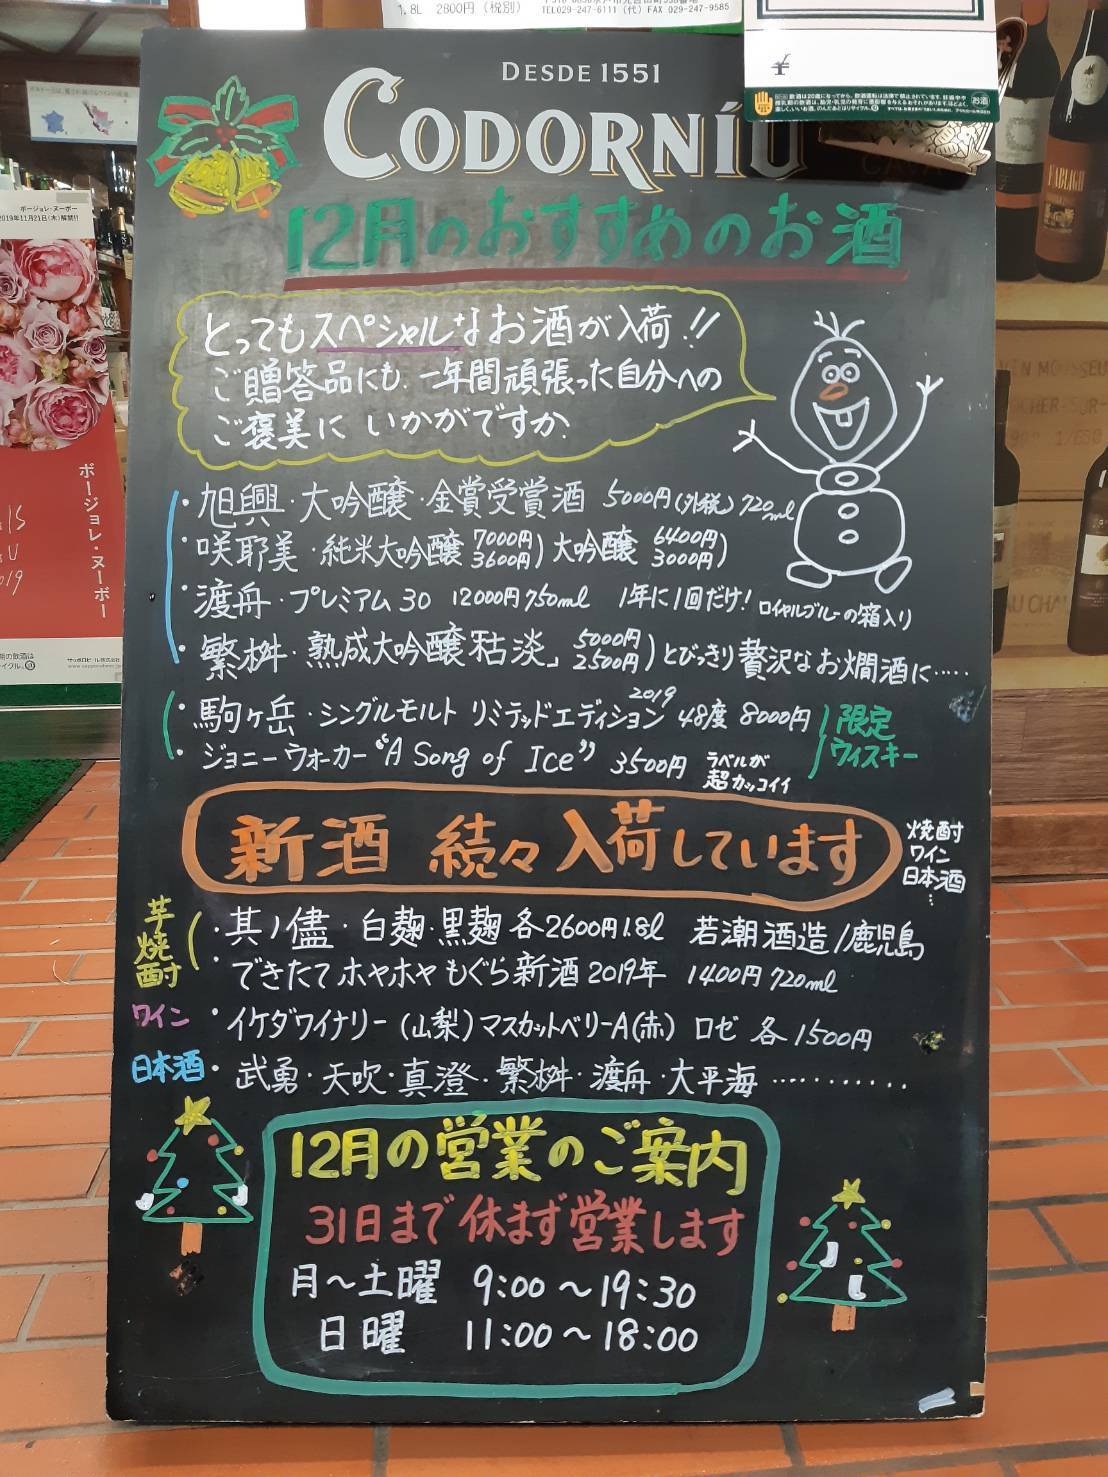 1.8L 2800円 (税別)
TEL029-247-6111 (代) FAX 029-247-9585
¥
お酒
DESDE 1551
CODORNÍU
12月のおすすめのお酒
とってもスペシャルなお酒が入荷!!
ご贈答品にも、一年間頑張った自分への
ご褒美に いかがですか。
・旭興・大吟醸・金賞受賞酒 5000円(外税) 720ml
・咲耶美・純米大吟醸 7000円 3600円) 大吟醸 6400円 3000円)
・渡舟・プレミアム30 12000円 750ml 1年に1回だけ! ロイヤルブルーの箱入り
・繁桝・熟成大吟醸「枯淡」 5000円 2500円) とびっきり贅沢なお燗酒に‥‥
・駒ヶ岳・シングルモルト リミテッドエディション 2019 48度 8000円
・ジョニーウォーカー "A Song of Ice" 3500円 ラベルが 超カッコイイ
限定
ウィスキー
新酒 続々入荷しています
焼酎
ワイン
日本酒
⋮
芋焼酎
・其ノ儘・白麹・黒麹 各2600円 1.8l 若潮酒造/鹿児島
・できたてホヤホヤ もぐら新酒 2019年 1400円 720ml
ワイン ・イケダワイナリー (山梨) マスカットベリーA(赤) ロゼ 各1500円
日本酒 ・武勇・天吹・真澄・繁桝・渡舟・大平海 ‥‥‥‥‥
12月の営業のご案内
31日まで休まず営業します
月〜土曜 9:00〜19:30
日曜 11:00〜18:00
ボージョレ・ヌーボー
2019年11月21日(木)解禁!!
ボージョレ・ヌーボー
VIN MOUSSEU